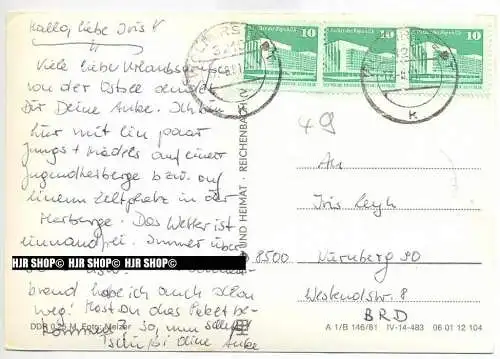 Hallo, liebe Iris!
Viele liebe Urlaubsgrüße
von der Ostsee sendet
Dir Deine Anke. Ich bin
hier mit ein paar
Jungs + Mädels auf einer
Jugendherberge bzw. auf
einem Zeltplatz in der
Herberge. Das Wetter ist
einwandfrei. Immer über
HJR SHOP© HJR SHOP© HJR SHOP©
brand habe ich auch schon
weg! Hast du das Paket be-
kommen? So, nun
Tschüß! Deine Anke
DDR 0,25 M Foto: Melzer
UND HEIMAT · REICHENBACH
10
10
10
K
K
49
An
Iris
8500 Nürnberg 90
Westendstr. 8
BRD
A 1/B 146/81 IV-14-483 06 01 12 104